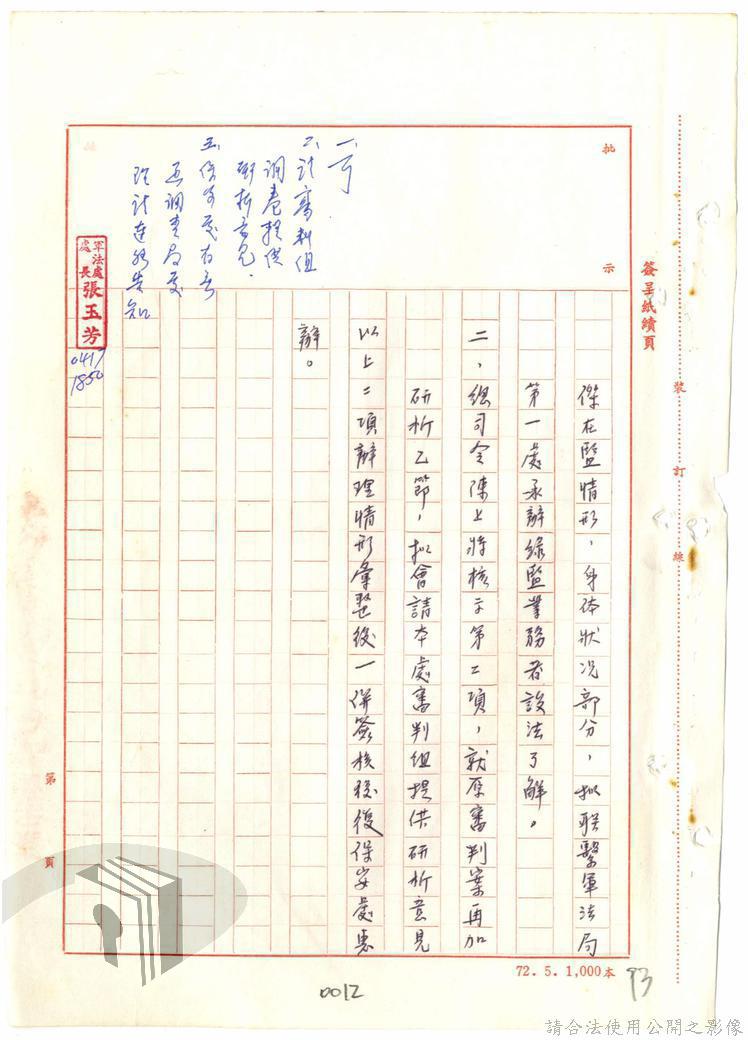 簽呈紙續頁
裝
訂
線
批示
傑在監情形，身体狀況部分，拟联繫軍法局
第一處承辦綠監業務者設法了解。
二、總司令陳上將核示第二項，就原審判案再加
研析乙節，拟會請本處審判組提供研析意見
以上二項辦理情形彙整後一併簽核後復保安處惠
辦。
一、可
二、請審判組
調卷提供
研析意見.
軍法處處長 張玉芳
0417
1850
第 頁
72.5.1,000本
93
0012
請合法使用公開之影像